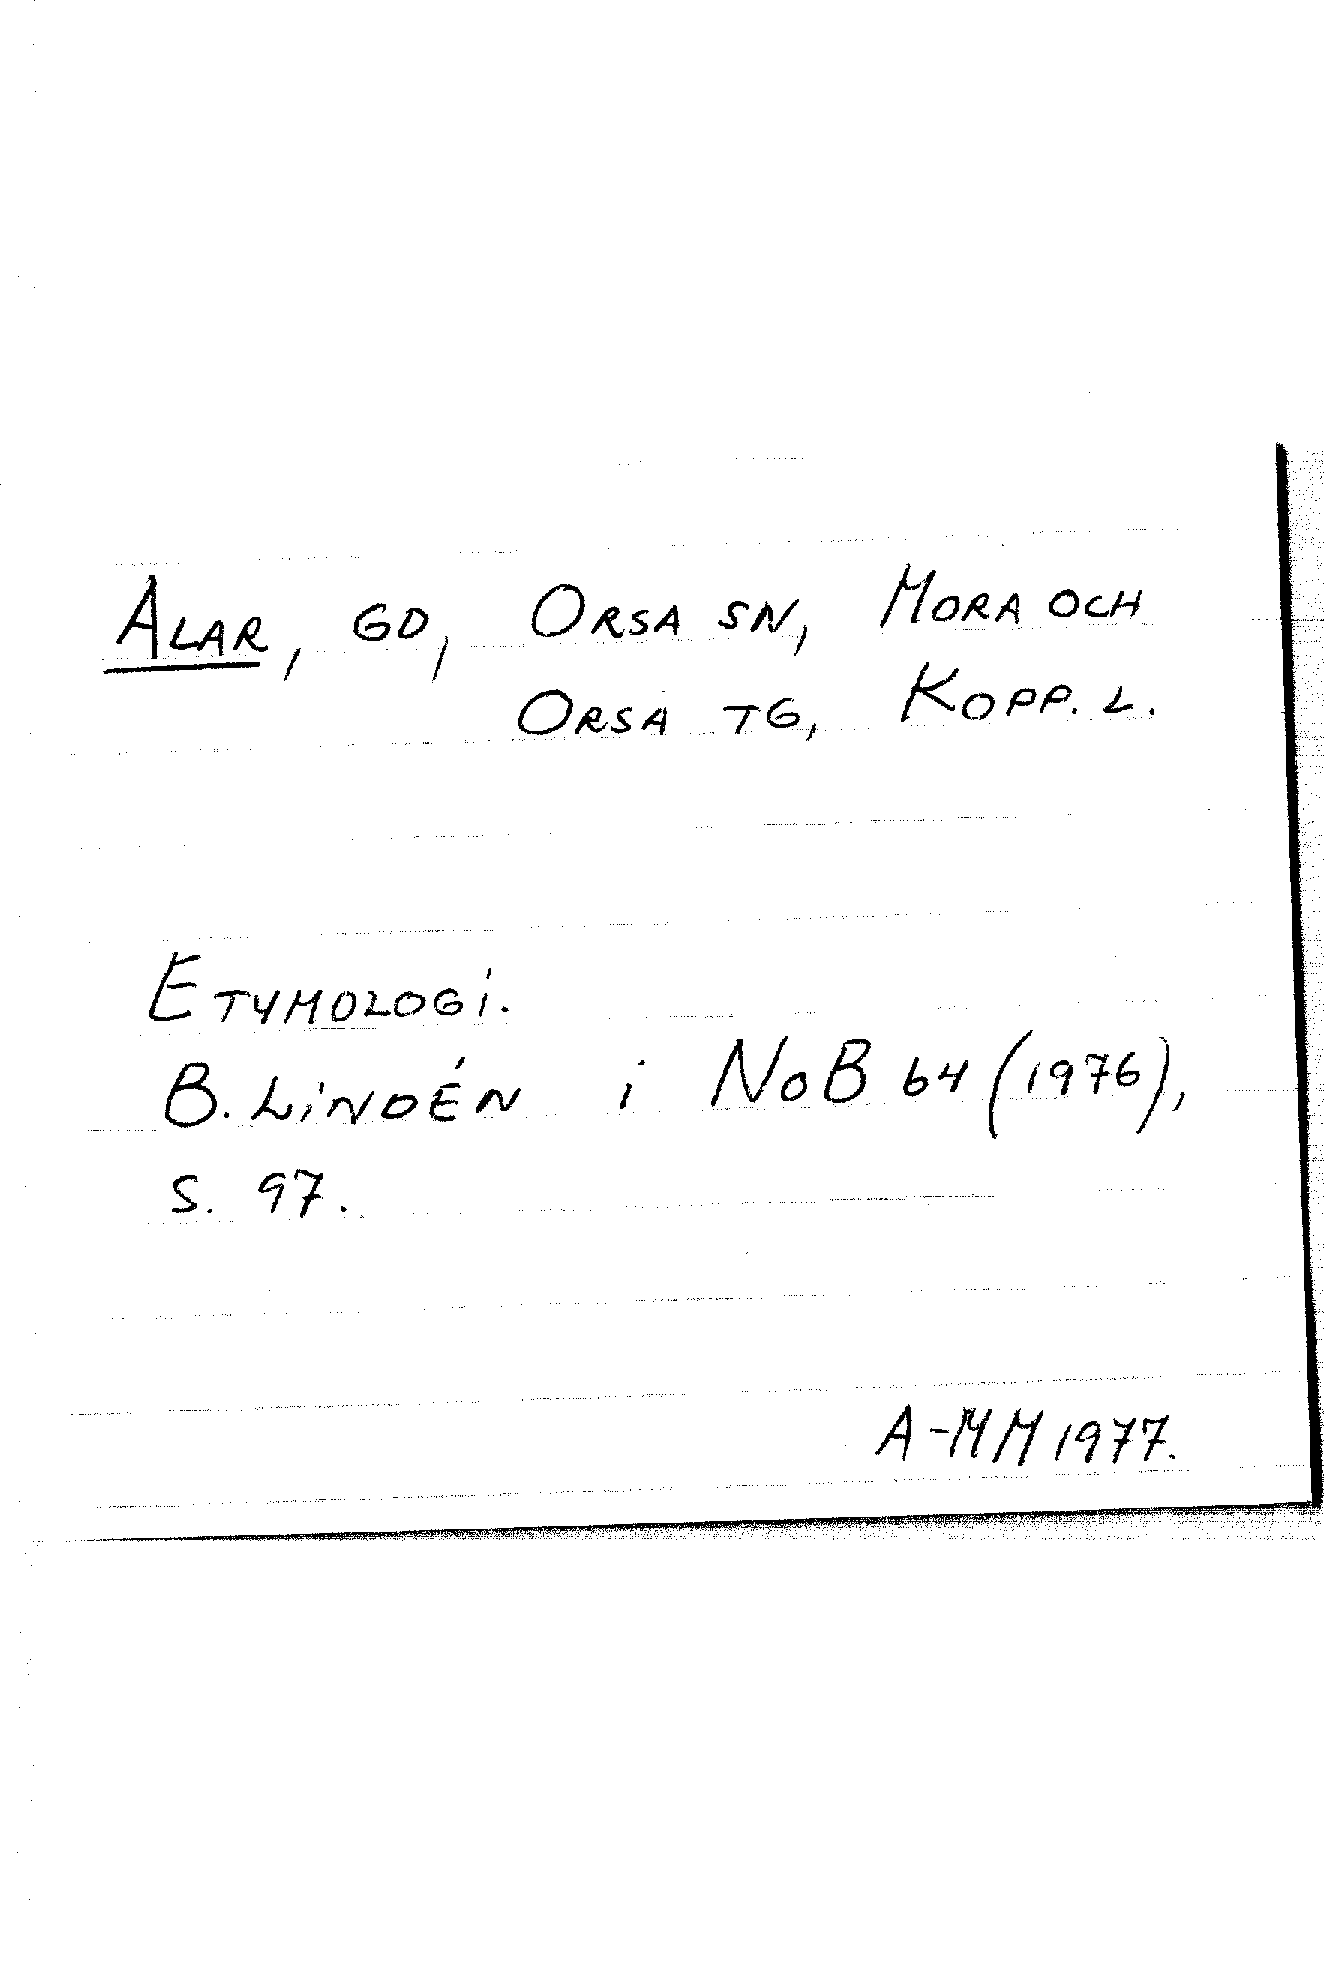 ALAR, GD, ORSA SN, MORA OCH
ORSA TG, KOPP. L.
ETYMOLOGI.
B. LINDÉN i NoB 64 (1976),
S. 97.
A-MM 1977.